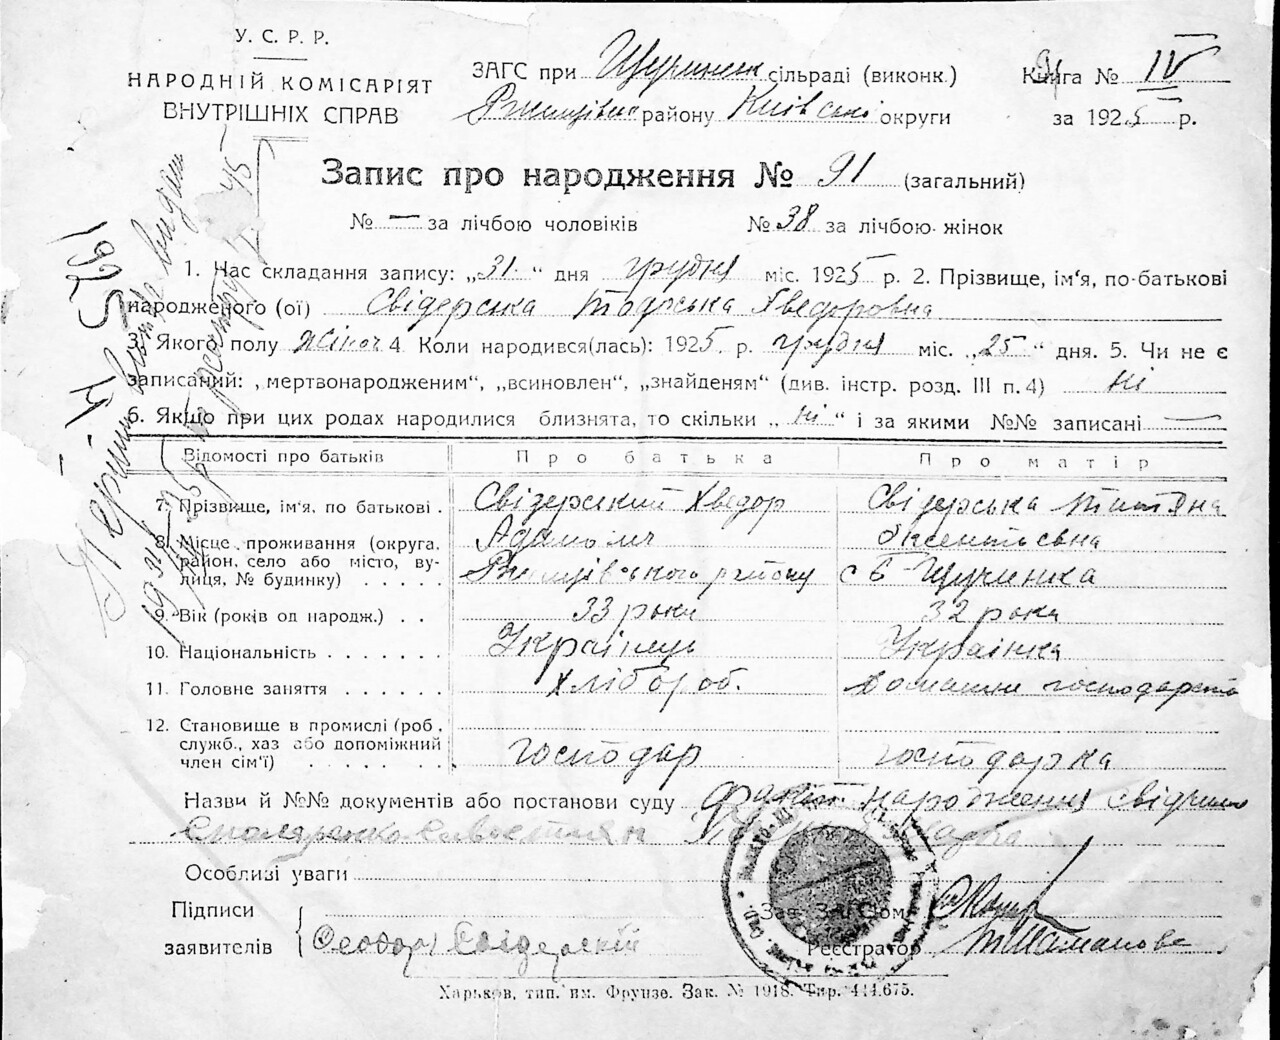 У. С. Р. Р.
НАРОДНІЙ КОМІСАРІЯТ
ВНУТРІШНІХ СПРАВ
ЗАГС при Щучинськ сільраді (виконк.)
Ржищівськ району Київської округи
Книга № IV
за 1925 р.
Запис про народження № 91 (загальний)
№ — за лічбою чоловіків № 38 за лічбою жінок
1. Час складання запису: „31" дня грудня міс. 1925 р. 2. Прізвище, ім'я, по-батькові
народженого (ої) Свідерська Тодоська Хведоровна
3. Якого полу жіноч 4. Коли народився(лась): 1925 р. грудня міс. „25" дня. 5. Чи не є
записаний: „мертвонародженим", „всиновлен", „знайденям" (див. інстр. розд. III п. 4) ні
6. Якщо при цих родах народилися близнята, то скільки „ні" і за якими №№ записані —
Відомості про батьків Про батька Про матір
7. Прізвище, ім'я, по батькові . Свідерский Хведор Свідерська Татяна
8. Місце проживання (округа, Адамович Оксентьєвна
район, село або місто, ву-
лиця, № будинку) . . . . . Ржищівського району с Щучинка
9. Вік (років од народж.) . . 33 роки 32 рока
10. Національність . . . . . . . Українець Українка
11. Головне заняття . . . . . . Хлібороб. Домашнє господарств
12. Становище в промислі (роб.,
служб., хаз або допоміжний
член сім'ї) . . . . . . . господар господарка
Назви й №№ документів або постанови суду факт народження свідчили
Столяренко Савастиян
Особливі уваги
Підписи
заявителів Феодор Свідерский
Зав. ЗАГСом
Реєстратор Т Шаманов
Харьков, тип. им. Фрунзе. Зак. № 1918. Тир. 444.675.
1925